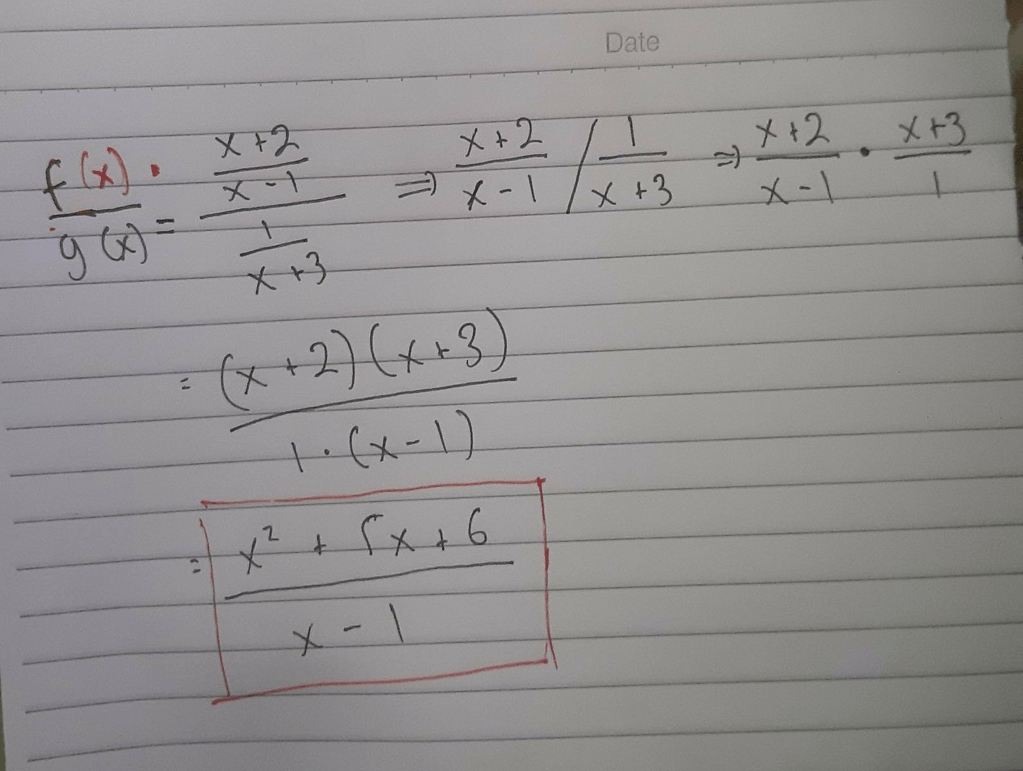 Date
f(x)/g(x) = ((x+2)/(x-1))/(1/(x+3)) ⇒ (x+2)/(x-1) / 1/(x+3) ⇒ (x+2)/(x-1) · (x+3)/1
= (x+2)(x+3)/(1·(x-1))
= (x²+5x+6)/(x-1)